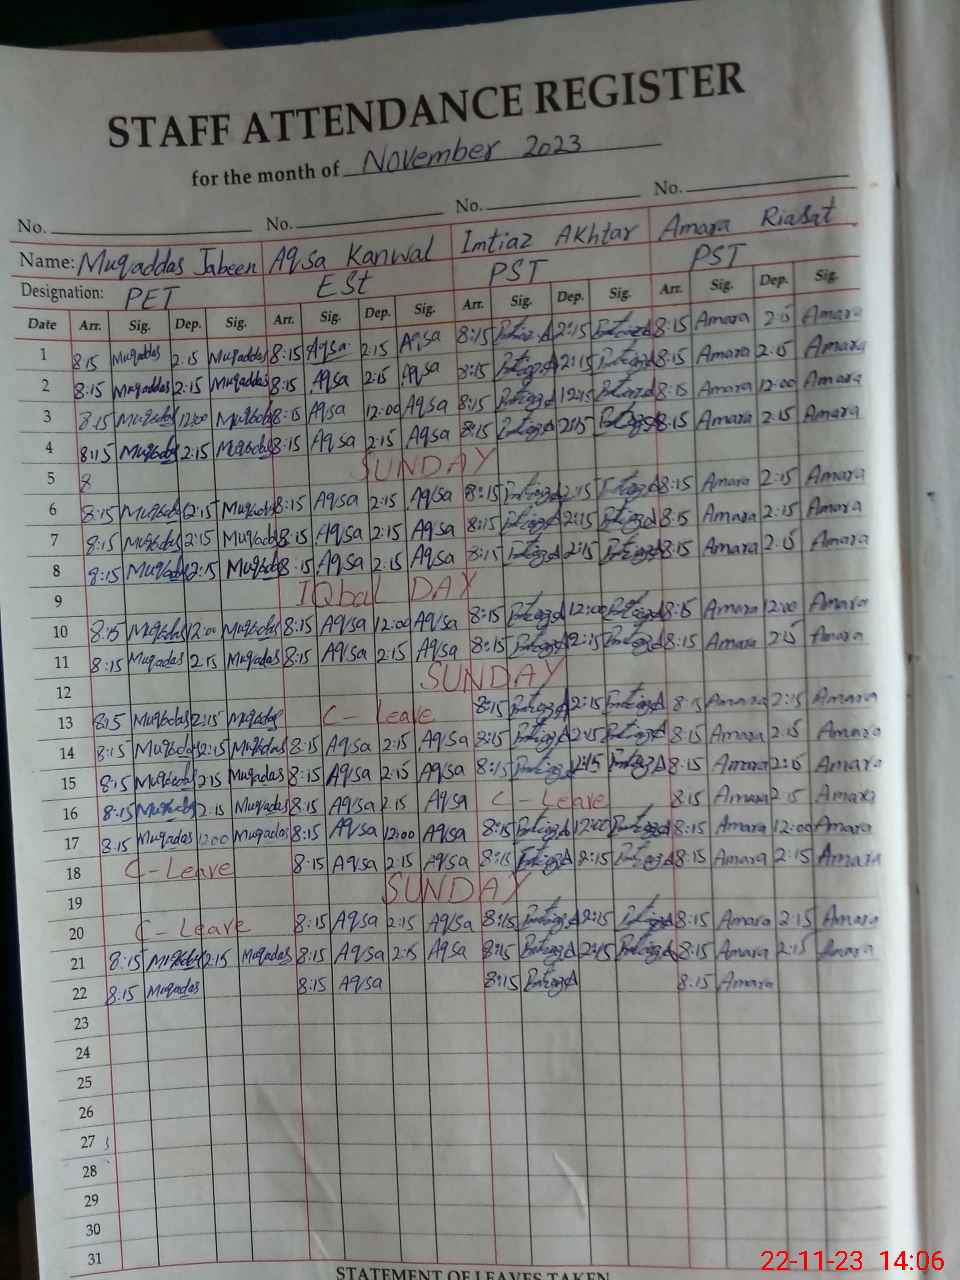 STAFF ATTENDANCE REGISTER
for the month of November 2023
No. No. No. No.
Name: Muqaddas Jabeen Aqsa Kanwal Imtiaz Akhtar Amara Riasat
Designation: PET ESt PST PST
Date Arr. Sig. Dep. Sig. Arr. Sig. Dep. Sig. Arr. Sig. Dep. Sig. Arr. Sig. Dep. Sig.
1 8:15 Muqaddas 2:15 Muqaddas 8:15 Aqsa 2:15 Aqsa 8:15 2:15 8:15 Amara 2:15 Amara
2 8:15 Muqaddas 2:15 Muqaddas 8:15 Aqsa 2:15 Aqsa 8:15 2:15 8:15 Amara 2:15 Amara
3 8:15 12:00 8:15 Aqsa 12:00 Aqsa 8:15 8:15 Amara 12:00 Amara
4 8:15 2:15 8:15 Aqsa 2:15 Aqsa 8:15 2:15 8:15 Amara 2:15 Amara
5 8 SUNDAY
6 8:15 2:15 8:15 Aqsa 2:15 Aqsa 8:15 2:15 8:15 Amara 2:15 Amara
7 8:15 2:15 8:15 Aqsa 2:15 Aqsa 8:15 2:15 8:15 Amara 2:15 Amara
8 8:15 2:15 8:15 Aqsa 2:15 Aqsa 8:15 2:15 8:15 Amara 2:15 Amara
9 IQbal DAY
10 8:15 12:00 8:15 Aqsa 12:00 Aqsa 8:15 12:00 8:15 Amara 12:00 Amara
11 8:15 Muqadas 2:15 Muqadas 8:15 Aqsa 2:15 Aqsa 8:15 2:15 8:15 Amara 2:15 Amara
12 SUNDAY
13 8:15 2:15 C- Leave 8:15 2:15 8:15 Amara 2:15 Amara
14 8:15 2:15 8:15 Aqsa 2:15 Aqsa 8:15 2:15 8:15 Amara 2:15 Amara
15 8:15 2:15 Muqadas 8:15 Aqsa 2:15 Aqsa 8:15 2:15 8:15 Amara 2:15 Amara
16 8:15 2:15 Muqadas 8:15 Aqsa 2:15 Aqsa C- Leave 8:15 Amara 2:15 Amara
17 8:15 Muqadas 12:00 Muqadas 8:15 Aqsa 12:00 Aqsa 8:15 12:00 8:15 Amara 12:00 Amara
18 C-Leave 8:15 Aqsa 2:15 Aqsa 8:15 2:15 8:15 Amara 2:15 Amara
19 SUNDAY
20 C- Leave 8:15 Aqsa 2:15 Aqsa 8:15 2:15 8:15 Amara 2:15 Amara
21 8:15 2:15 Muqadas 8:15 Aqsa 2:15 Aqsa 8:15 2:15 8:15 Amara 2:15 Amara
22 8:15 Muqadas 8:15 Aqsa 8:15 8:15 Amara
23
24
25
26
27
28
29
30
31
STATEMENT OF LEAVES TAKEN
22-11-23 14:06